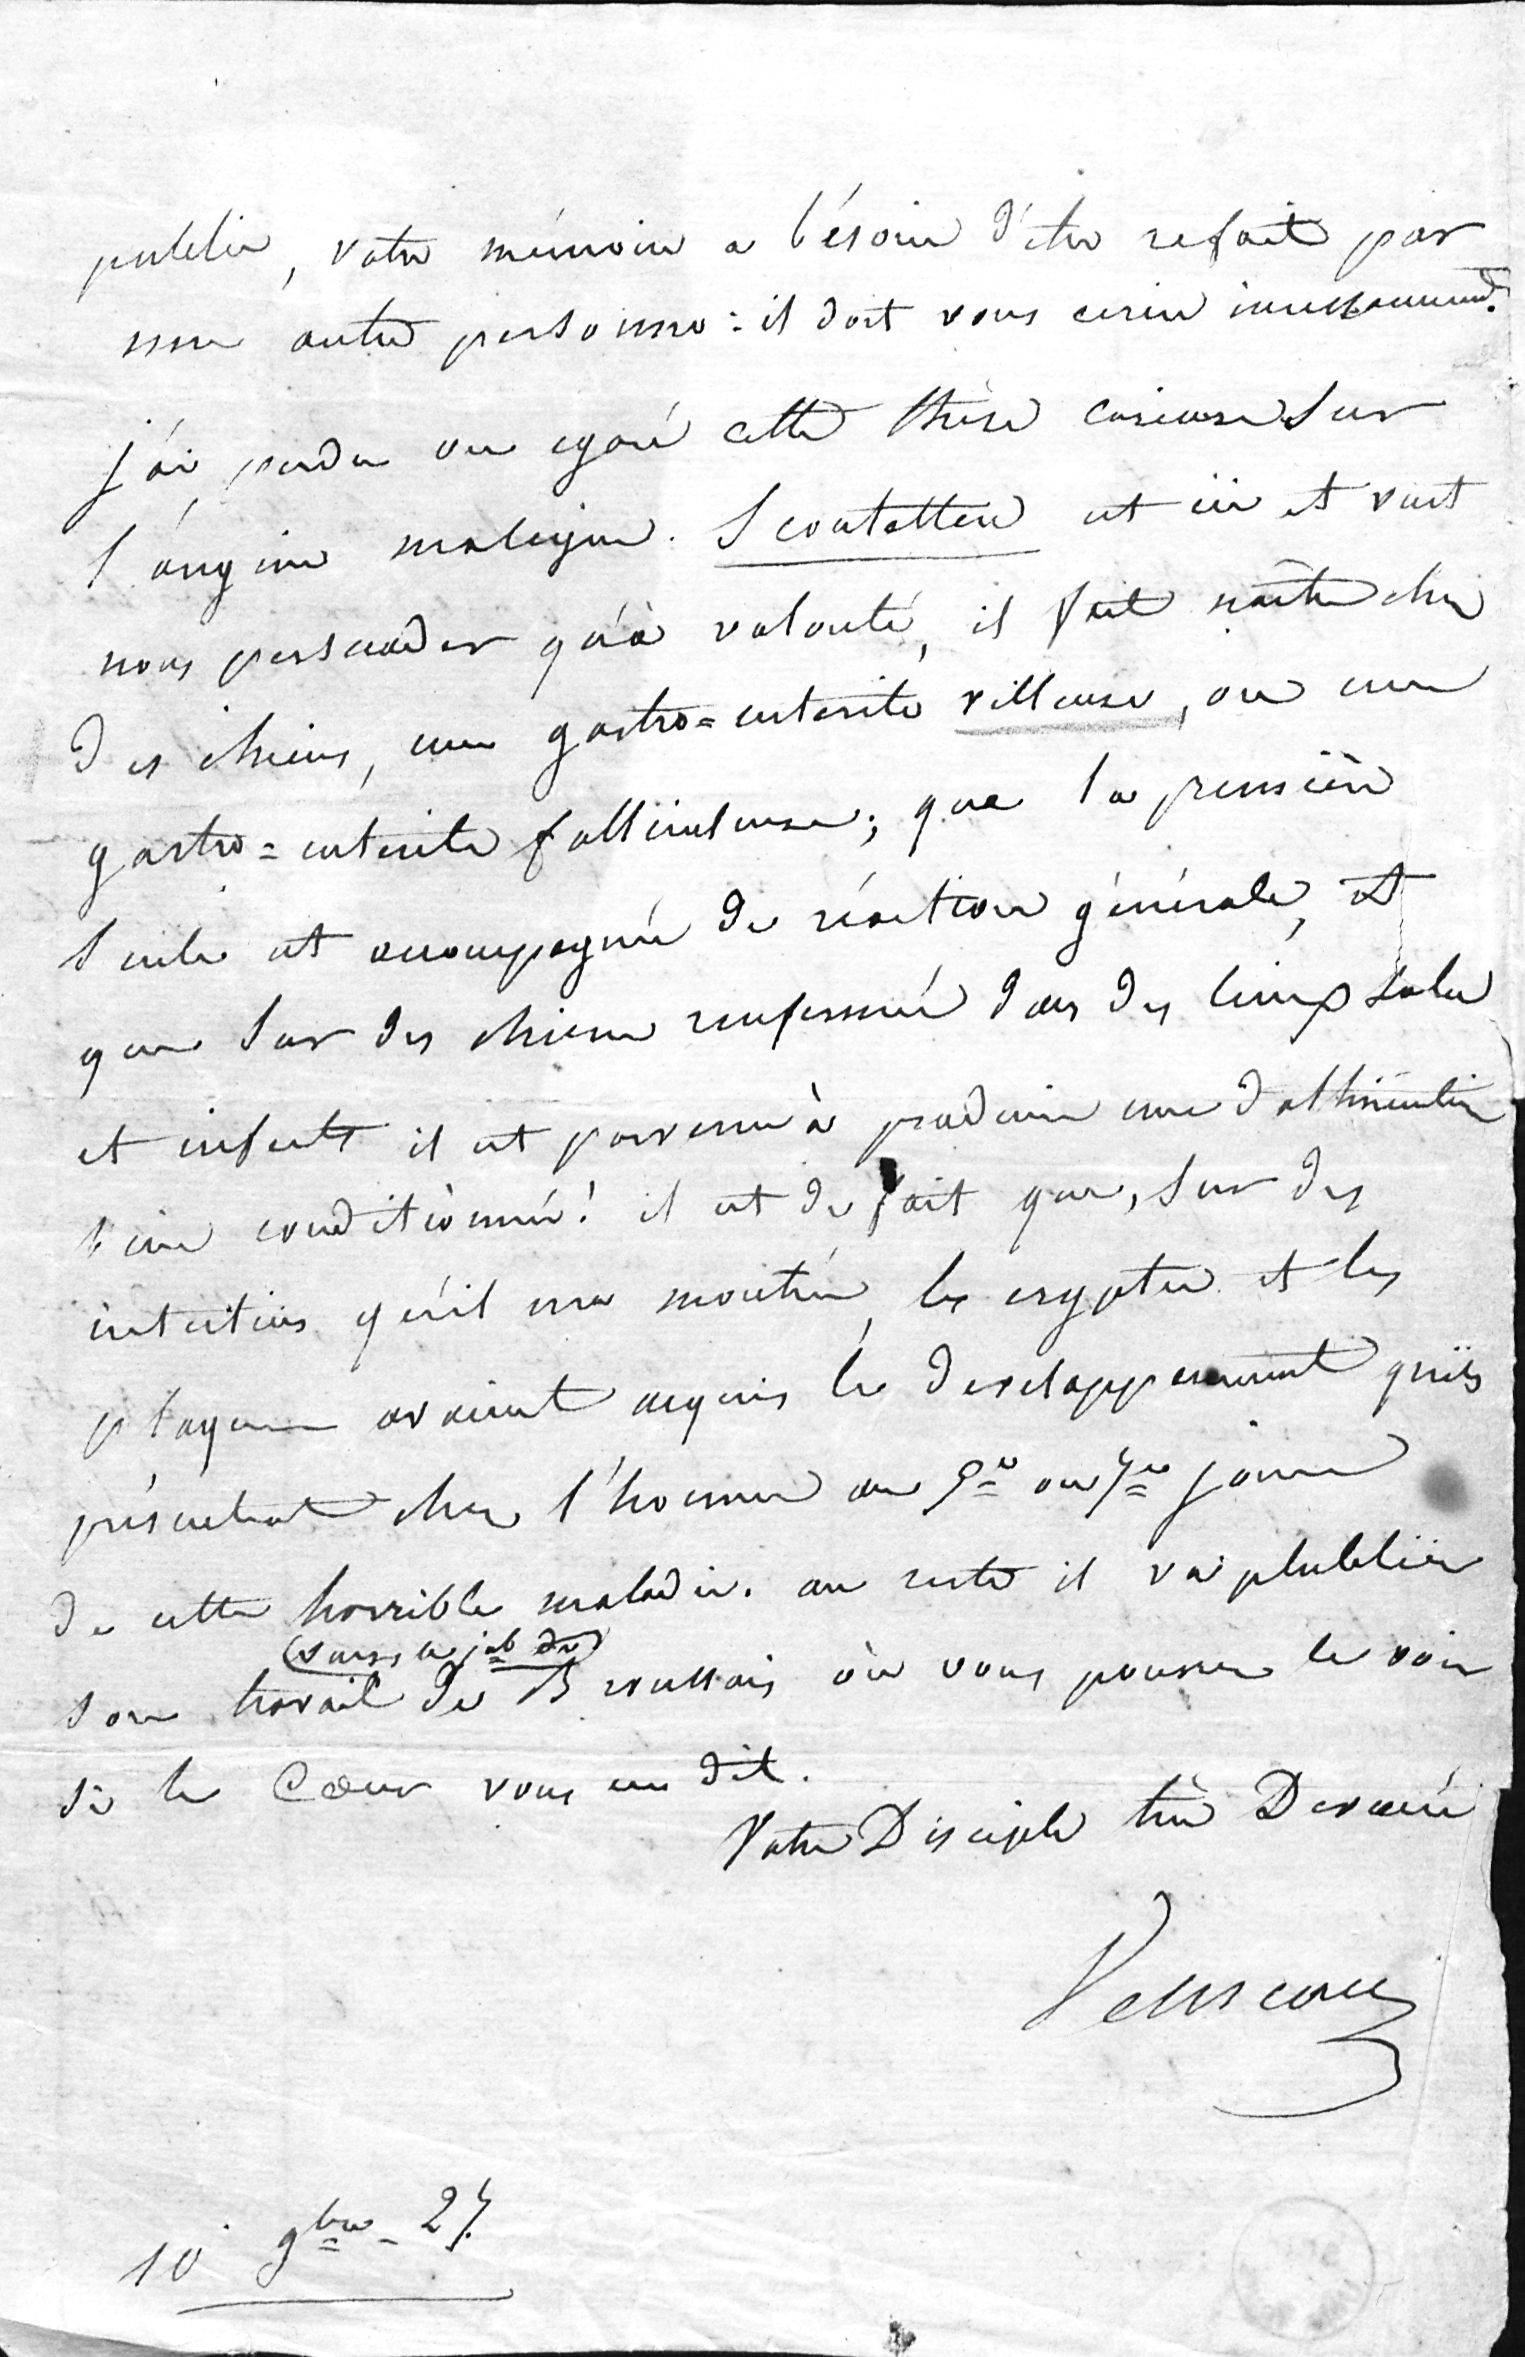 publier, votre mémoire a bésoin d'être refait par
une autre personne : il doit vous ecrire incessamment.
j'ai perdu ou egaré cette thèse curieuse sur
l'angine maligne. Scoutetten est ici et veut
nous persuader qu'à volonté, il fait naître chez
des chiens, une gastro=enterite villeuse, ou une
gastro=enterite folliculeuse; que la première
seule est accompagnée de réaction générale, et
que sur des chiens renfermés dans des lieux sales
et infects il est parvenu à produire une dothinenterie
bien conditionnée! il est de fait que, sur des
intestins qu'il m'a montrés, les cryptes et les
plaques avaient acquis le developpement qu'ils
présentent chez l'homme au 5e ou 7e jour
de cette horrible maladie. au reste il va plublier
(dans le jal de)
son travail de Broussais où vous pourrez le voir
si le Cœur vous en dit.
Votre Disciple très Devoué
10 9bre - 27.